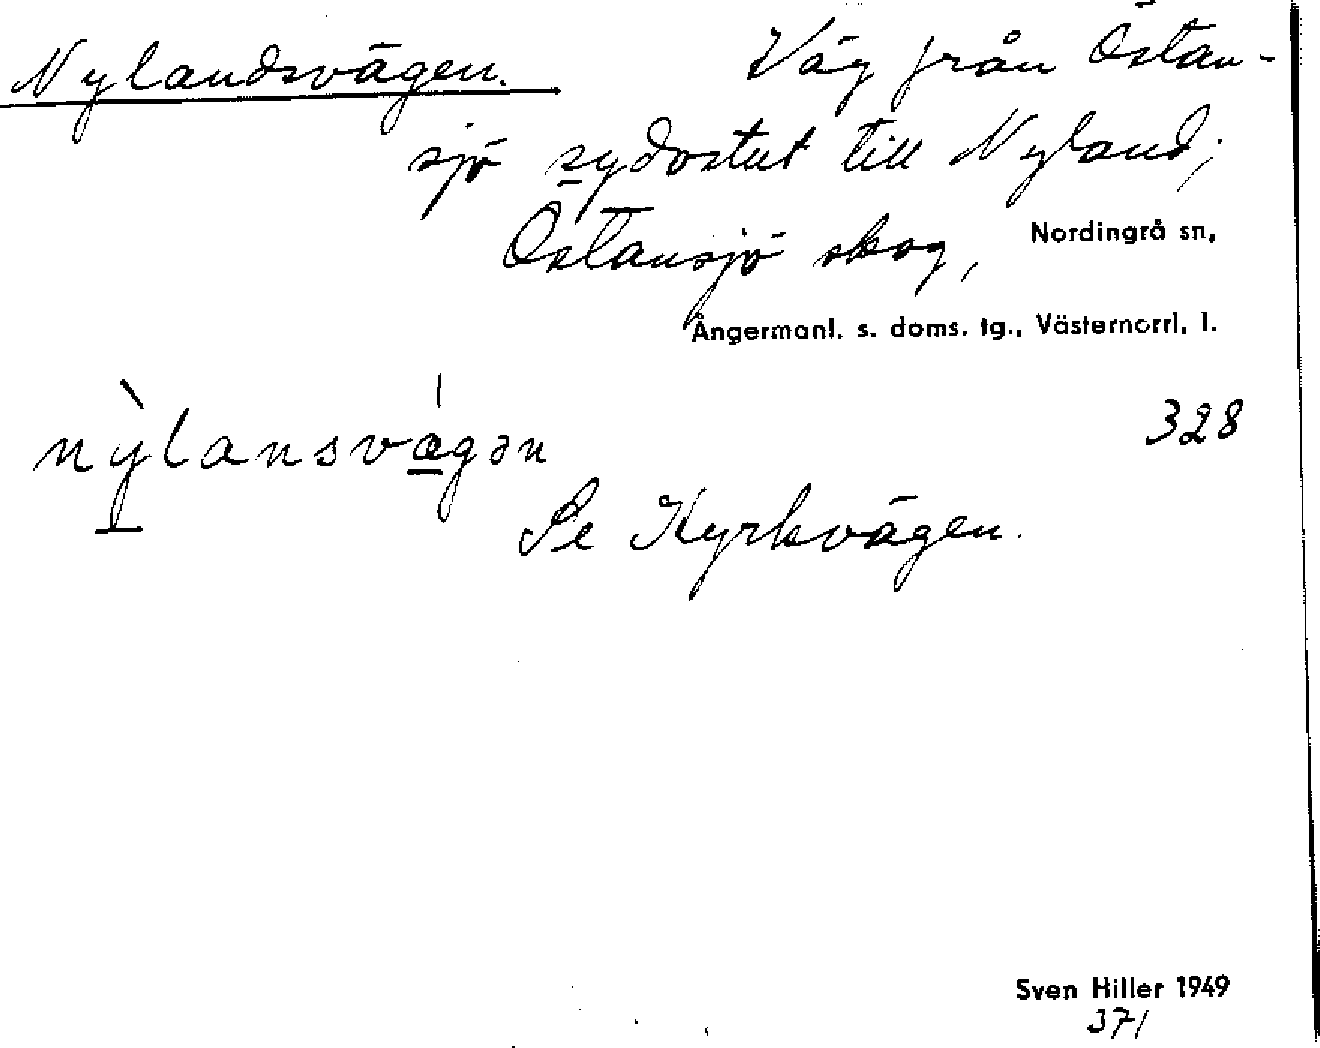 Nylandsvägen. Väg från Östan-
sjö sydostut till Nyland;
Östansjö skog, Nordingrå sn,
Ångermanl. s. doms. tg., Västernorrl. l.
328
nỳlansvágən
Se Kyrkvägen.
Sven Hiller 1949
371